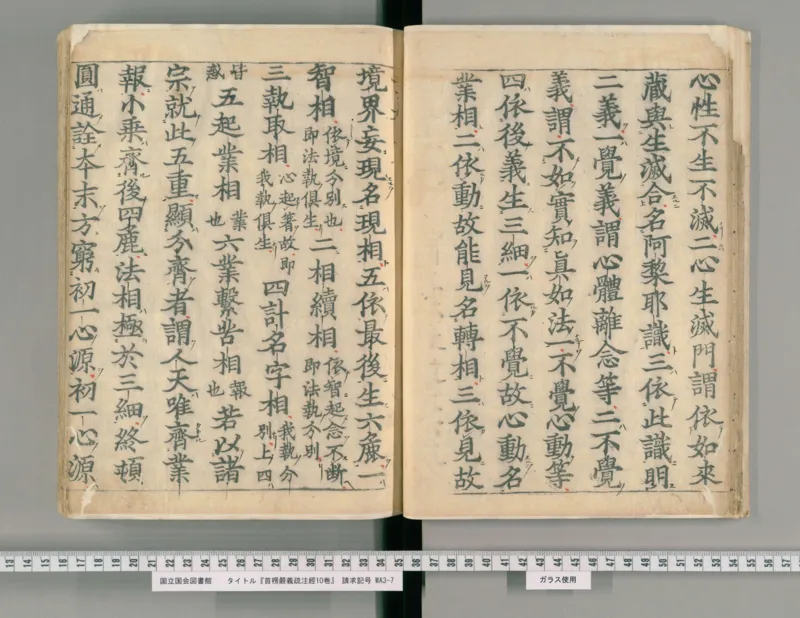 心性不生不滅二心生滅門謂依如來
藏與生滅合名阿黎耶識三依此識明
二義一覺義謂心體離念等二不覺
義謂不如實知眞如法一不覺心動等
四依後義生三細一依不覺故心動名
業相二依動故能見名轉相三依見故
境界妄現名現相五依最後生六麁一
智相依境分別也即法執俱生二相續相依智起念不斷即法執分別
三執取相心起著故即我執俱生四計名字相我執分別上四
皆惑五起業相業也六業繫苦相報也若以諸
宗就此五重顯分齊者謂人天唯齊業
報小乘齊後四麁法相極於三細終頓
圓通詮本末方窮初一心源初一心源
13 14 15 16 17 18 19 20 21 22 23 24 25 26 27 28 29 30 31 32 33 34 35 36 37 38 39 40 41 42 43 44 45 46 47 48 49 50 51 52 53 54 55 56 57
国立国会図書館 タイトル『首楞嚴義疏注經10巻』 請求記号 WA3-7
ガラス使用